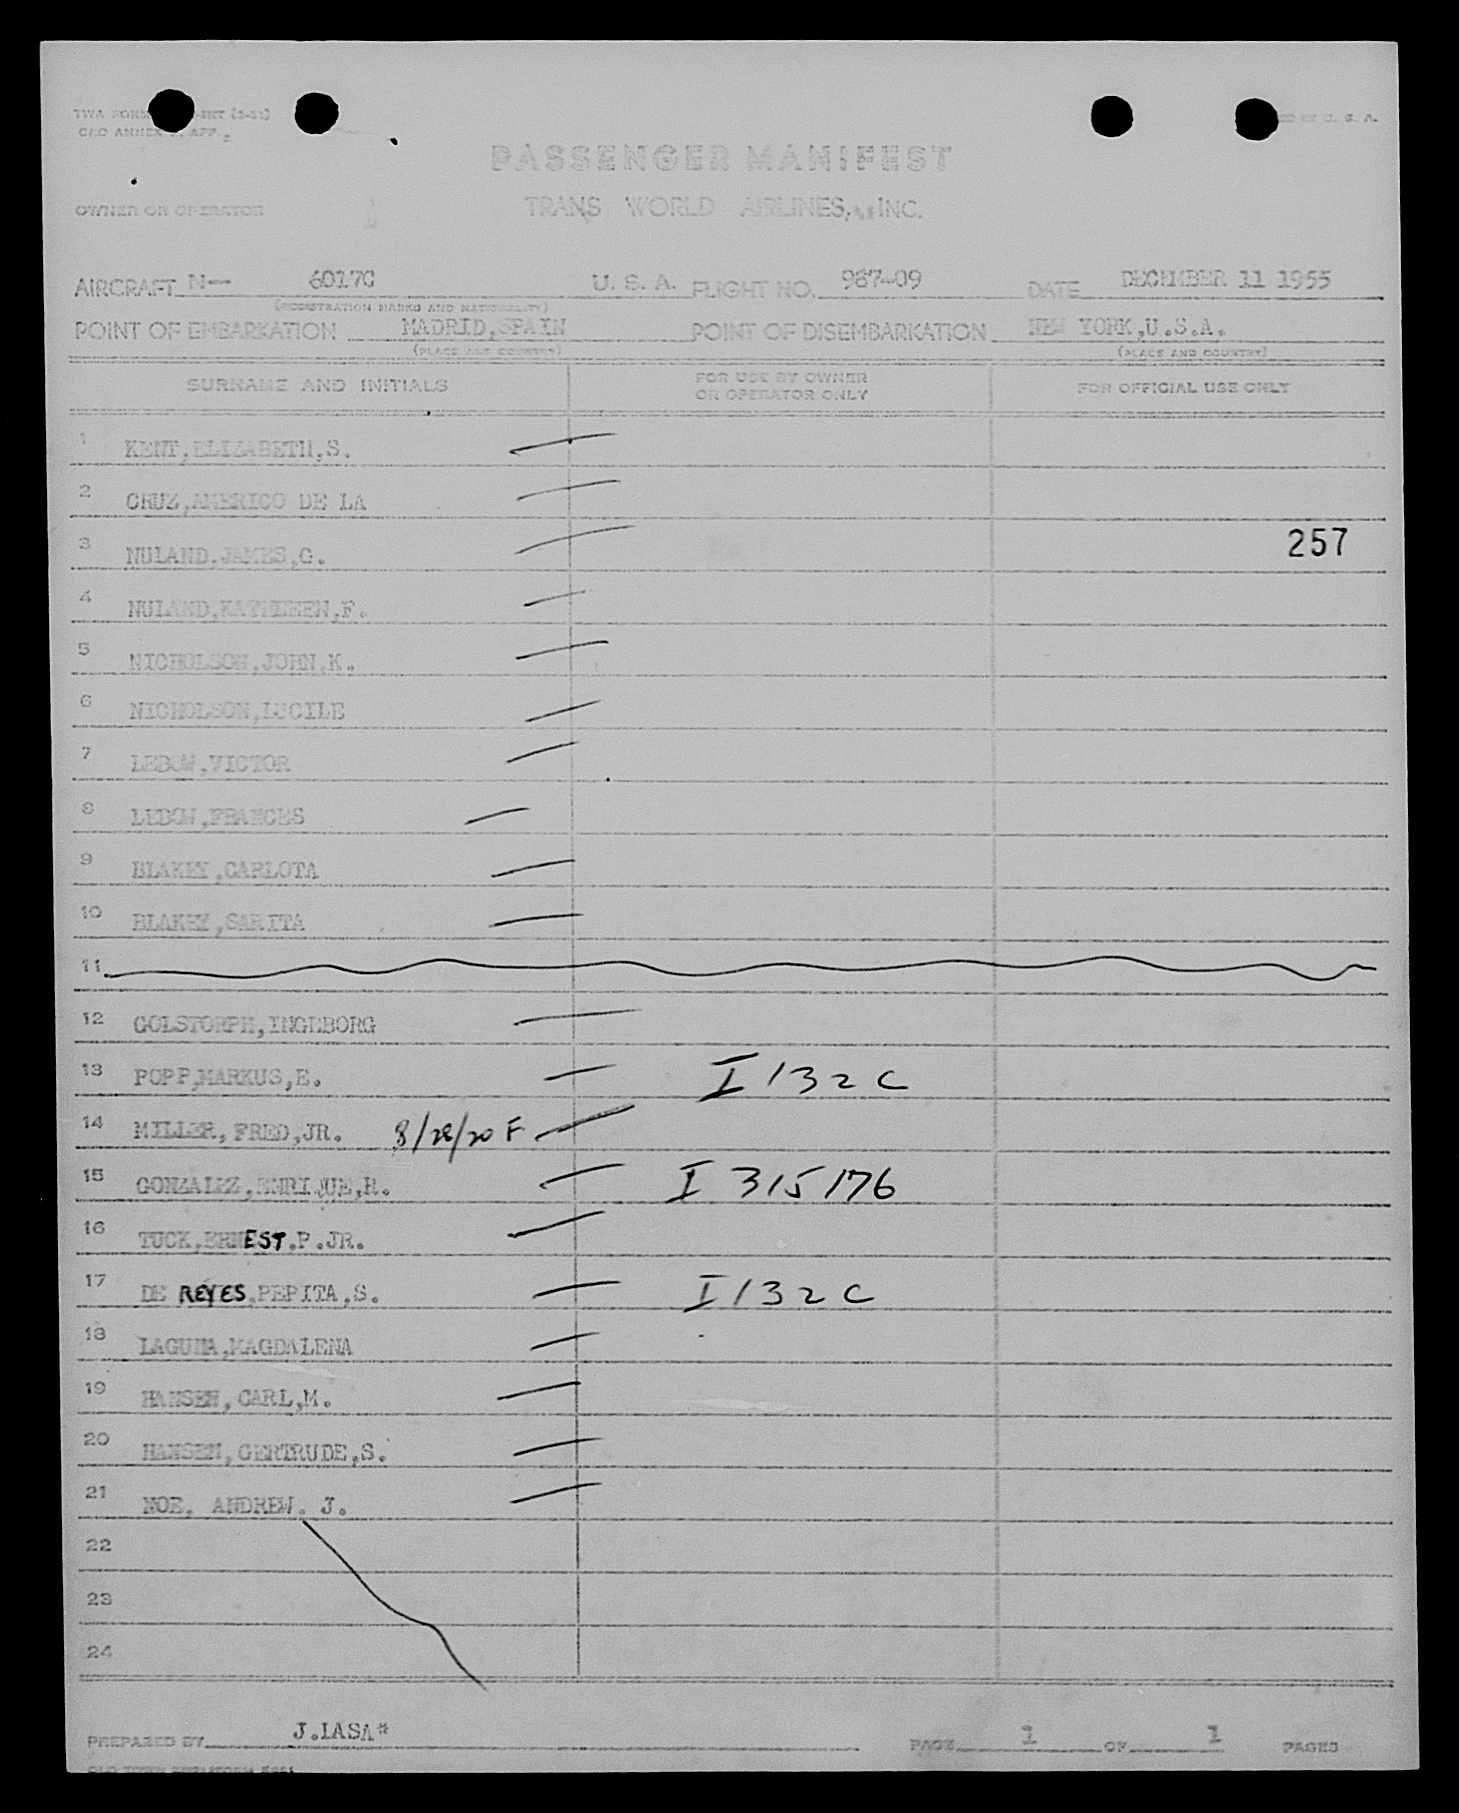 TWA FORM
PASSENGER MANIFEST
OWNER OR OPERATOR TRANS WORLD AIRLINES, INC.
AIRCRAFT N-- 6017C U. S. A. FLIGHT NO. 987-09 DATE DECEMBER 11 1955
(REGISTRATION MARKS AND NATIONALITY)
POINT OF EMBARKATION MADRID,SPAIN POINT OF DISEMBARKATION NEW YORK,U.S.A.
(PLACE AND COUNTRY) (PLACE AND COUNTRY)
SURNAME AND INITIALS FOR USE BY OWNER OR OPERATOR ONLY FOR OFFICIAL USE ONLY
1 KENT,ELIZABETH,S.
2 CRUZ,AMERICO DE LA
3 NULAND.JAMES,G. 257
4 NULAND,KATHLEEN,F.
5 NICHOLSON,JOHN,K.
6 NICHOLSON,LUCILE
7 LEBOW,VICTOR
8 LEBOW,FRANCES
9 BLAKEY,CARLOTA
10 BLAKEY,SARITA
11
12 GOLSTORPH,INGEBORG
13 POPP,MARKUS,E. I 132 C
14 MILLER, FRED,JR. 8/28/20 F
15 GONZALEZ,ENRIQUE,R. I 315176
16 TUCK,ERNEST.P.JR.
17 DE REYES,PEPITA,S. I 132 C
18 LAGUNA,MAGDALENA
19 HANSEN, CARL,M.
20 HANSEN, GERTRUDE,S.
21 NOE, ANDREW. J.
22
23
24
PREPARED BY J.LASA* PAGE 1 OF 1 PAGES